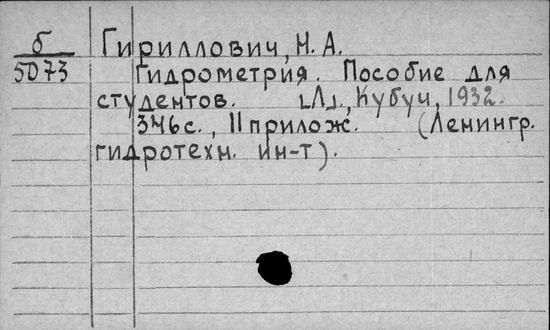 б Гириллович, Н. А.
5073 Гидрометрия. Пособие для
студентов. [Л]., Кубуч, 1932.
346с., 11 прилож. (Ленингр.
гидротехн. ин-т).